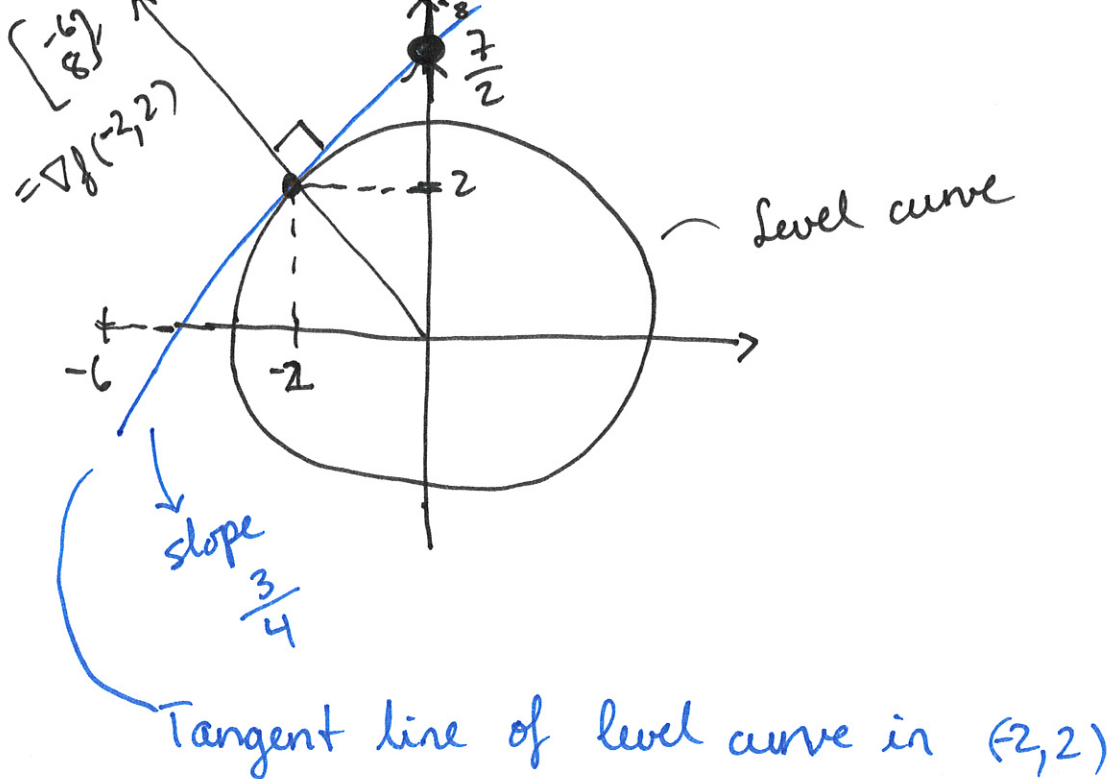 8
[-6
8]
= ∇f(-2,2)
7/2
2
Level curve
-6
-2
slope
3/4
Tangent line of level curve in (-2,2)